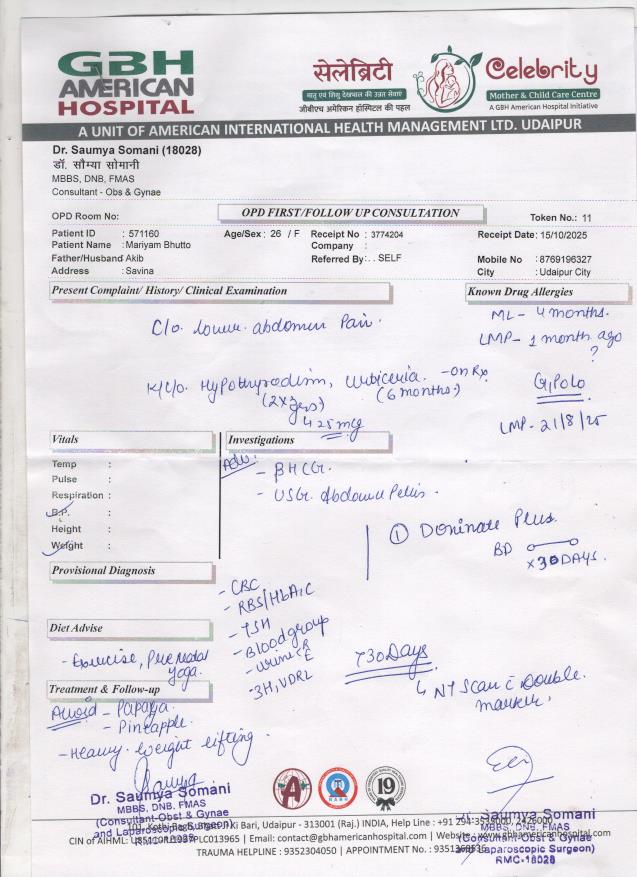 GBH
AMERICAN
HOSPITAL
सेलेब्रिटी
मातृ एवं शिशु देखभाल की उन्नत सेवाएं
जीबीएच अमेरिकन हॉस्पिटल की पहल
Celebrity
Mother & Child Care Centre
A GBH American Hospital Initiative
A UNIT OF AMERICAN INTERNATIONAL HEALTH MANAGEMENT LTD. UDAIPUR
Dr. Saumya Somani (18028)
डॉ. सौम्या सोमानी
MBBS, DNB, FMAS
Consultant - Obs & Gynae
OPD Room No:
OPD FIRST/FOLLOW UP CONSULTATION
Token No.: 11
Patient ID : 571160 Age/Sex : 26 / F Receipt No : 3774204 Receipt Date: 15/10/2025
Patient Name : Mariyam Bhutto Company :
Father/Husband : Akib Referred By : . . SELF Mobile No : 8769196327
Address : Savina City : Udaipur City
Present Complaint/ History/ Clinical Examination
Known Drug Allergies
C/o. lower abdomen Pain.
ML - 4 months.
LMP - 1 month ago
?
K/C/o. Hypothyrodism, Urticeria. - on Rx
(2x yrs) (6 months.)
↳ 25 mcg
G1P0L0
LMP - 21/8/25
Vitals
Investigations
Temp :
Pulse :
Respiration :
B.P. :
Height :
Weight :
Adv.
- βHCG.
- USG. Abdomen Pelvis.
① Doninate Plus.
BD
x 30 DAYS.
Provisional Diagnosis
- CBC
- RBS/HbA1C
- TSH
- Blood group
- Urine R
E
- 3H, VDRL
Diet Advise
- Exercise, Prenatal
Yoga.
T 30 Days
↳ NT Scan c̄ Double
marker.
Treatment & Follow-up
Avoid - Papaya
- Pineapple.
- Heavy weight lifting.
Dr. Saumya Somani
MBBS, DNB, FMAS
(Consultant-Obst & Gynae
and Laparoscopic Surgeon)
RMC-18028
NABH
19
Dr. Saumya Somani
MBBS, DNB, FMAS
(Consultant-Obst & Gynae
and Laparoscopic Surgeon)
RMC-18028
101, Kothi Bagh, Bhatt Ji Ki Bari, Udaipur - 313001 (Raj.) INDIA, Help Line : +91 294-3535000, 2426000
Email: contact@gbhamericanhospital.com | Website : www.gbhamericanhospital.com
TRAUMA HELPLINE : 9352304050 | APPOINTMENT NO. :